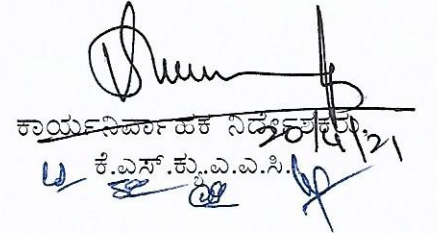 ಕಾರ್ಯನಿರ್ವಾಹಕ ನಿರ್ದೇಶಕರು,
20/4/21
ಕೆ.ಎಸ್.ಕ್ಯು.ಎ.ಎ.ಸಿ.